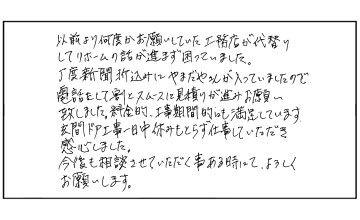 以前より何度かお願いしていた工務店が代替り
してリホームの話が進まず困っていました。
丁度新聞折込みにやまだやさんが入っていましたので
電話をして割とスムースに見積りが進みお願い
致しました。料金的、工事期間的にも満足しています
玄関ドア工事一日中休みもとらず仕事していただき
感心しました。
今後も相談させていただく事ある時にて、よろしく
お願いします。